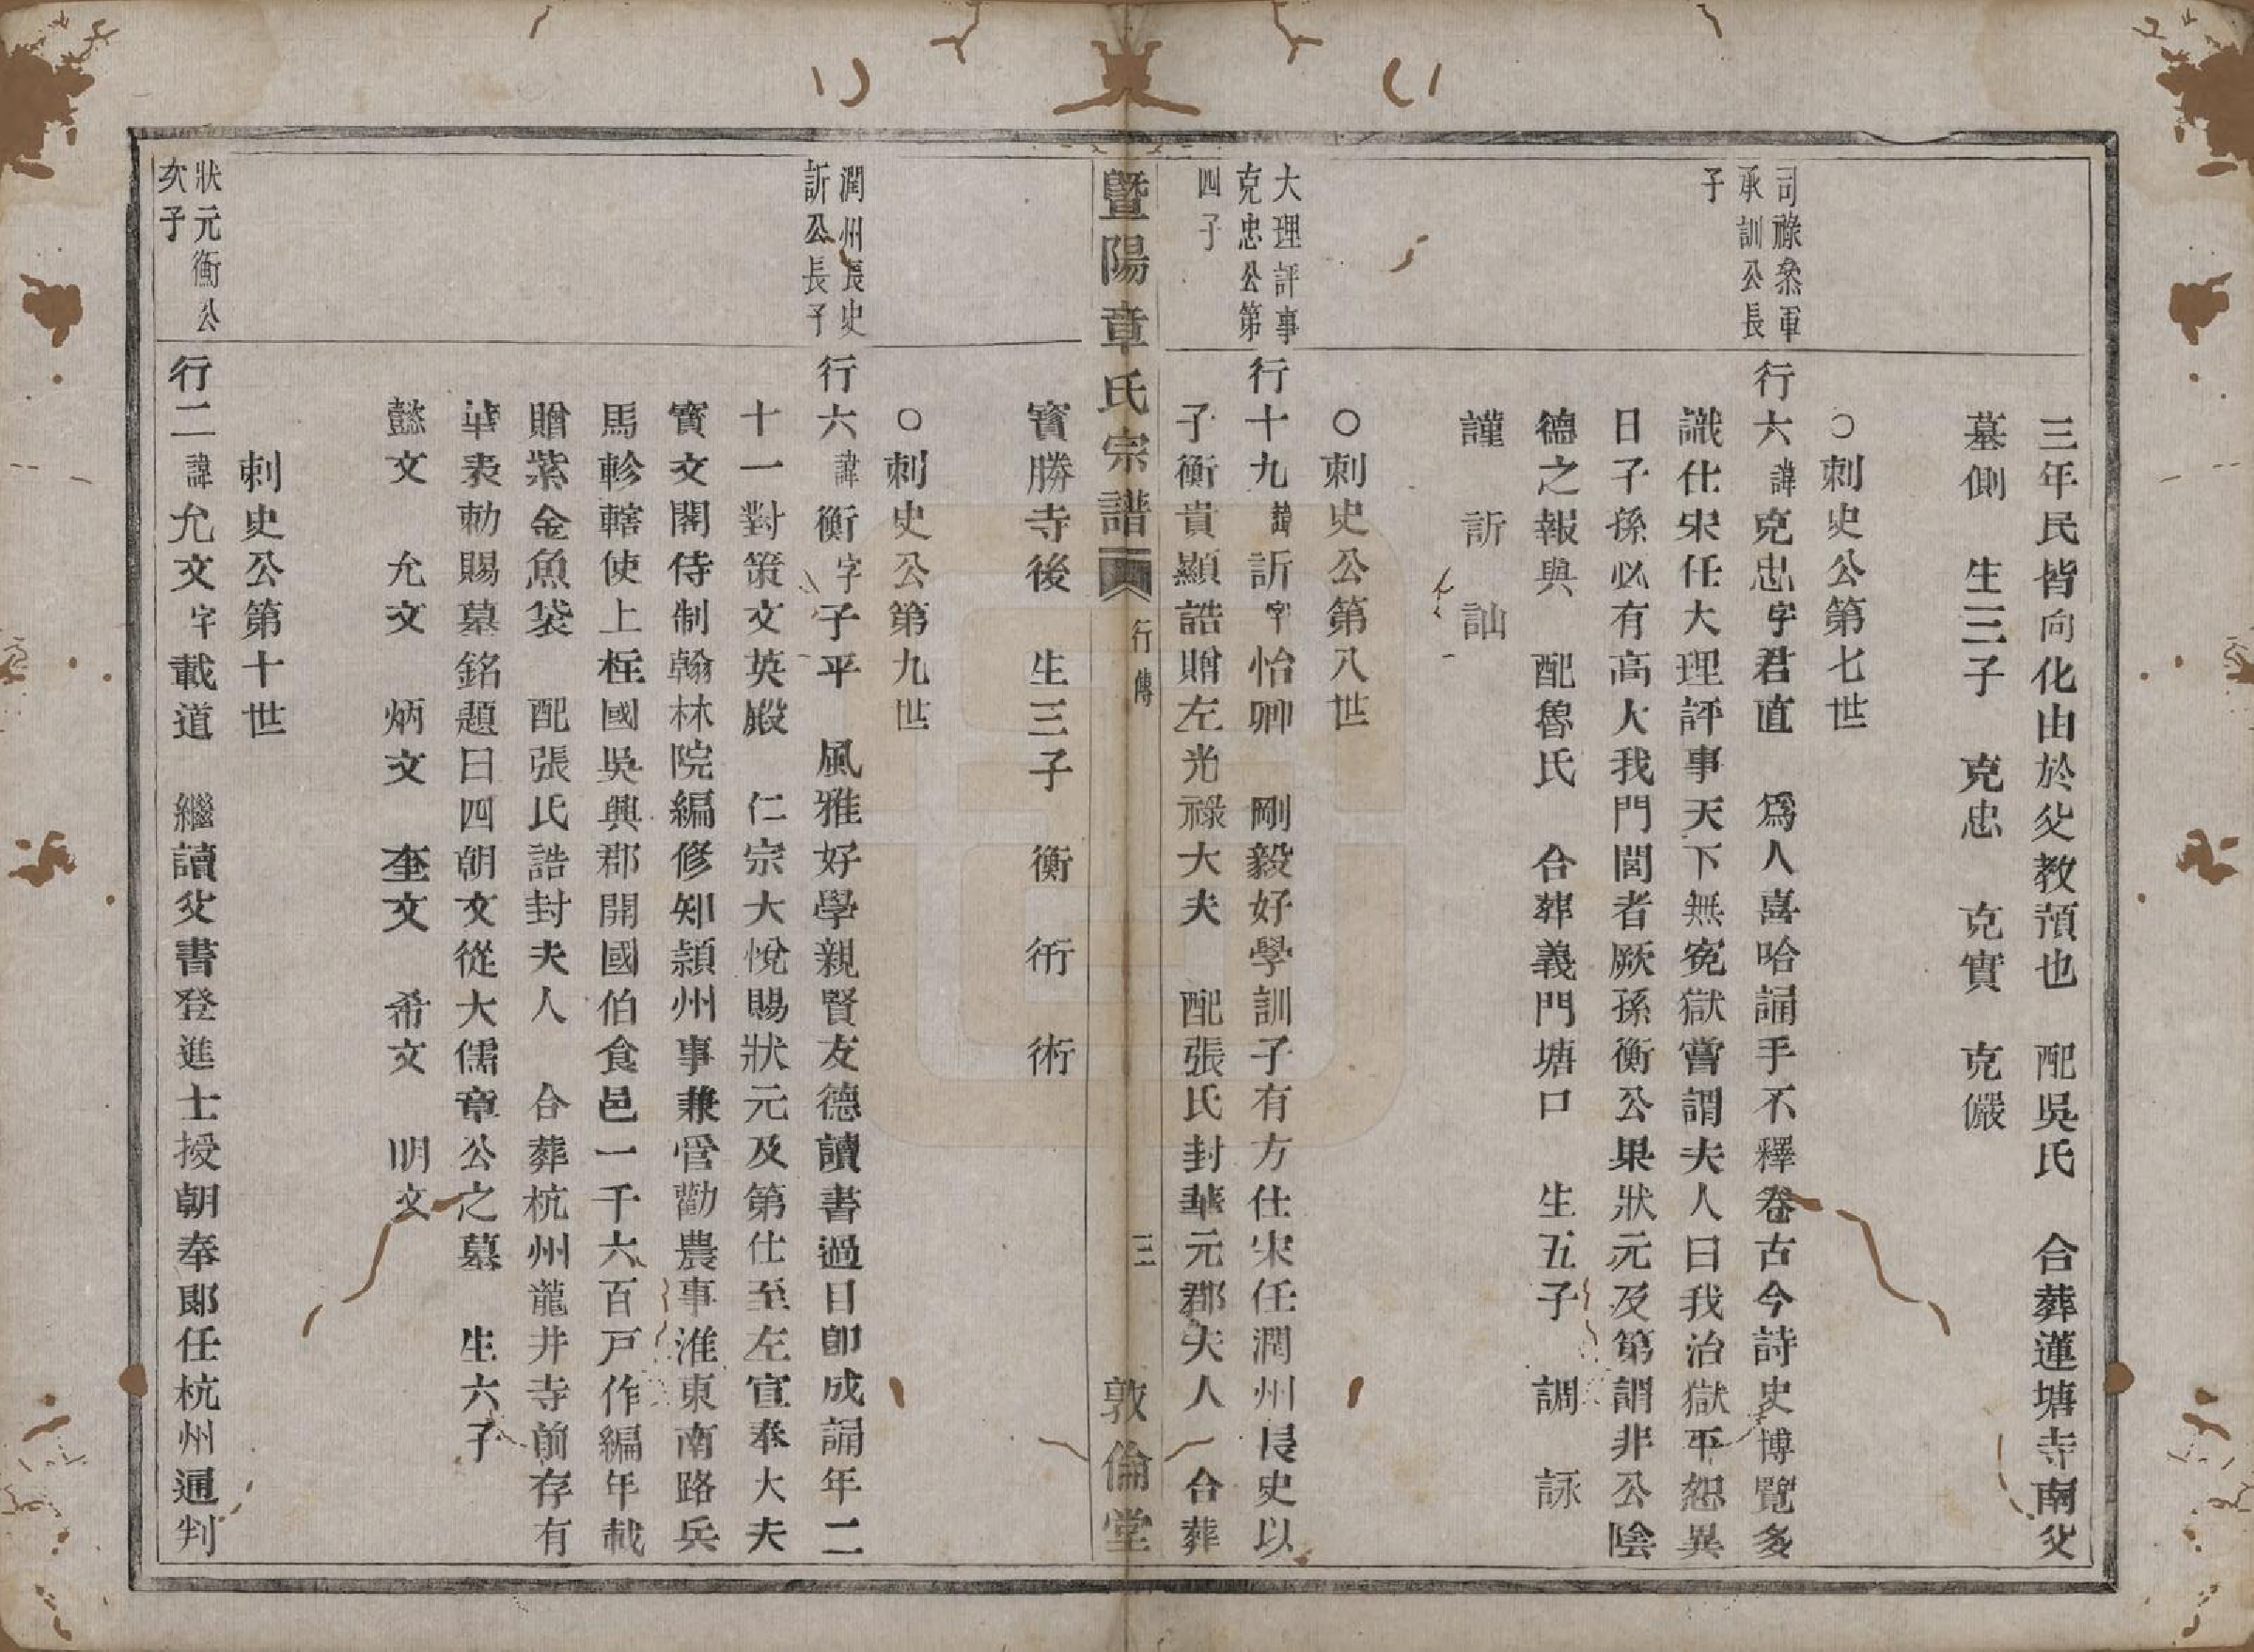 三年民皆向化由於父教預也　配吳氏　合葬蓮塘寺南父
墓側　生三子　克忠　克實　克儼
○刺史公第七世
司祿叅軍
承訓公長
子
行六諱克忠字君直　爲人喜哈誦手不釋卷古今詩史博覽多
識仕宋任大理評事天下無寃獄嘗謂夫人曰我治獄平恕異
日子孫必有高大我門閭者厥孫衡公果狀元及第謂非公陰
德之報與　配魯氏　合葬義門塘口　生五子　調　詠
謹　訢　訕
○刺史公第八世
大理評事
克忠公第
四子
行十九諱訢字怡卿　剛毅好學訓子有方仕宋任潤州長史以
子衡貴顯誥贈左光祿大夫　配張氏封華元郡夫人　合葬
暨陽章氏宗譜　行傳　三　敦倫堂
寳勝寺後　生三子　衡　衎　術
○刺史公第九世
潤州長史
訢公長子
行六諱衡字子平　風雅好學親賢友德讀書過目卽成誦年二
十一對策文英殿　仁宗大悅賜狀元及第仕至左宣奉大夫
寳文閣侍制翰林院編修知潁州事兼管勸農事淮東南路兵
馬軫轄使上柱國吳興郡開國伯食邑一千六百戸作編年載
贈紫金魚袋　配張氏誥封夫人　合葬杭州龍井寺前存有
華表勅賜墓銘題曰四朝文從大儒章公之墓　生六子
懿文　允文　炳文　奎文　希文　明文
刺史公第十世
狀元衡公
次子
行二諱允文字載道　繼讀父書登進士授朝奉郎任杭州通判